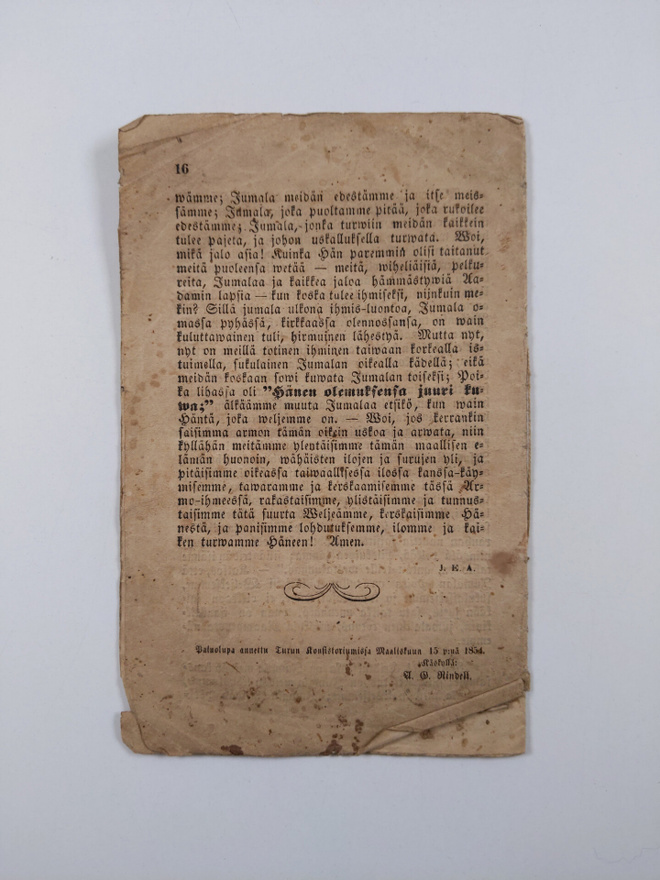 16
wämme; Jumala meidän edestämme ja itse meis=
sämme; Jumala, joka puoltamme pitää, joka rukoilee
edestämme; Jumala, jonka turwiin meidän kaikkein
tulee pajeta, ja johon uskalluksella turwata. Woi,
mikä jalo asia! Kuinka Hän paremmin olisi taitanut
meitä puoleensa wetää — meitä, wiheliäisiä, pelku=
reita, Jumalaa ja kaikkea jaloa hämmästywiä Aa=
damin lapsia — kun koska tulee ihmiseksi, nijnkuin me=
kin? Sillä jumala ulkona ihmis-luontoa, Jumala o=
massa pyhässä, kirkkaassa olennossansa, on wain
kuluttawainen tuli, hirmuinen lähestyä. Mutta nyt,
nyt on meillä totinen ihminen taiwaan korkealla is=
tuimella, sukulainen Jumalan oikealla kädellä; eikä
meidän koskaan sowi kuwata Jumalan toiseksi; Poi=
ka lihassa oli "Hänen olemuksensa juuri ku=
wa;" älkäämme muuta Jumalaa etsikö, kun wain
Häntä, joka weljemme on. — Woi, jos kerrankin
saisimma armon tämän oikein uskoa ja arwata, niin
kyllähän meitämme yleytäisimme tämän maallisen e=
lämän huonoin, wähäisten ilojen ja surujen yli, ja
pitäisimme oikeassa taiwaallisessa ilossa kanssa-käy=
misemme, tawaramme ja kerskaamisemme tässä Ar=
mo-ihmeessä, rakastaisimme, ylistäisimme ja tunnus=
taisimme tätä suurta Weljeämme, kerskaisimme Hä=
nestä, ja panisimme lohdutuksemme, ilomme ja kai=
ken turwamme Häneen! Amen.
J. E. A.
Painolupa annettu Turun Konsistoriumissa Maaliskuun 15 p:nä 1854.
Käskyllä:
A. G. Rindell.